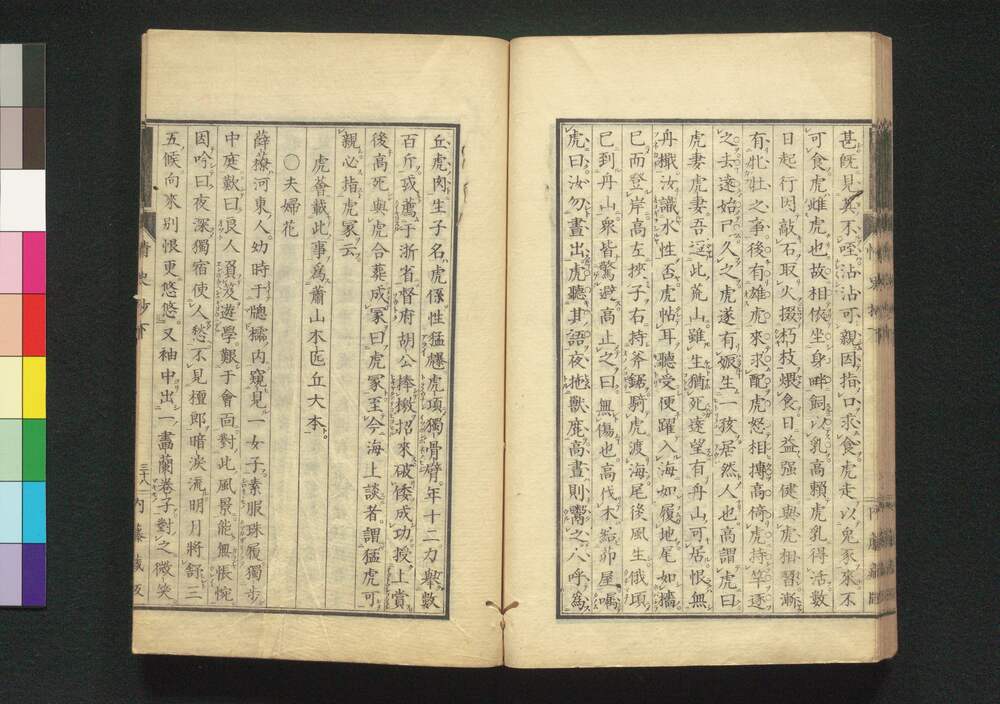 甚旣見其不咥沾沾可親因指口求食虎走以兔豕來不
可食虎雌虎也故相依坐身畔飼以乳高賴虎乳得活數
日起行因敲石取火掇朽枝煨食日益强健與虎相習漸
有牝牡之事後有雄虎來求配虎怒相搏高倚虎持竿逐
之去遠始已久之虎遂有娠生一孩居然人也高謂虎曰
虎妻虎妻吾逗此荒山雖生猶死遠望有舟山可居恨無
舟撥汝識水性否虎帖耳聽受便躍入海如履地尾如檣
已而登岸高左挾子右持斧鋸騎虎渡海尾後風生俄頃
已到舟山衆皆驚避高止之曰無傷也高伐木結茆屋囑
虎曰汝勿晝出虎聽其語夜拖獸鹿高晝則鬻之人呼爲
丘虎肉生子名虎孫性猛
虎項獨骨臂年十二力擧數
百斤或薦于浙省督府胡公捧檄招來破倭成功授上賞
後高死與虎合葬成冢曰虎冢至今海上談者謂猛虎可
親必指虎冢云
虎會載此事爲蕭山木匠丘大本
〇夫婦花
薛
河東人幼時于牕櫺內窺見一女子素服珠履獨步
中庭歎曰良人負笈遊學艱于會面對此風景能無悵惋
因吟曰夜深獨宿使人愁不見檀郎暗淚流明月將舒三
五候向來別恨更悠悠又袖中出一畫蘭卷子對之微笑
情史抄下
三十八
內藤藏板